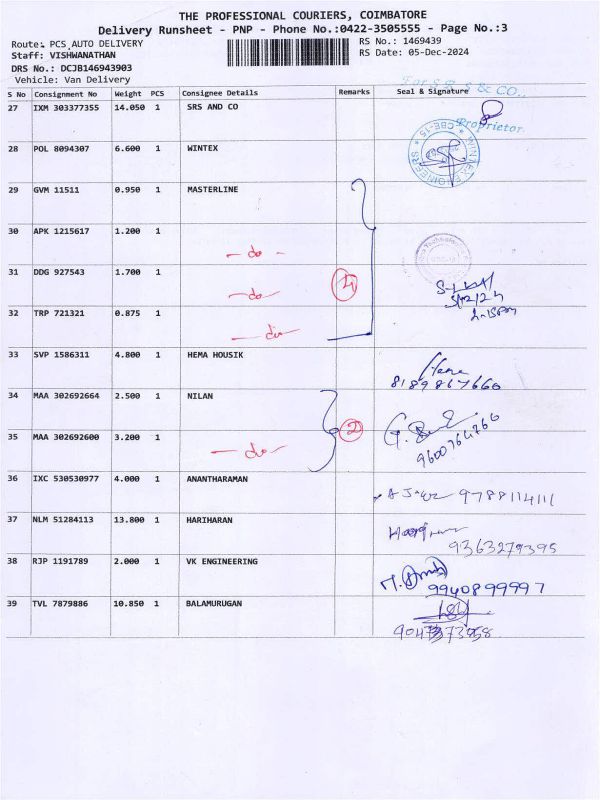 THE PROFESSIONAL COURIERS, COIMBATORE
Delivery Runsheet - PNP - Phone No.:0422-3505555 - Page No.:3
Route: PCS AUTO DELIVERY
RS No.: 1469439
Staff: VISHWANATHAN
RS Date: 05-Dec-2024
DRS No.: DCJB146943903
Vehicle: Van Delivery
For S R S & CO.,
S No Consignment No Weight PCS Consignee Details Remarks Seal & Signature
27 IXM 303377355 14.050 1 SRS AND CO
Proprietor
28 POL 8094307 6.600 1 WINTEX
WINTEX ENGINEERS * CBE-15 *
29 GVM 11511 0.950 1 MASTERLINE
30 APK 1215617 1.200 1
- do -
31 DDG 927543 1.700 1
4
- do
5/12/24
32 TRP 721321 0.875 1
- do
33 SVP 1586311 4.800 1 HEMA HOUSIK
Hema
8189867660
34 MAA 302692664 2.500 1 NILAN
2
35 MAA 302692600 3.200 1
- do -
9600764766
36 IXC 530530977 4.000 1 ANANTHARAMAN
9788114111
37 NLM 51284113 13.800 1 HARIHARAN
9363279395
38 RJP 1191789 2.000 1 VK ENGINEERING
9940899997
39 TVL 7879886 10.850 1 BALAMURUGAN